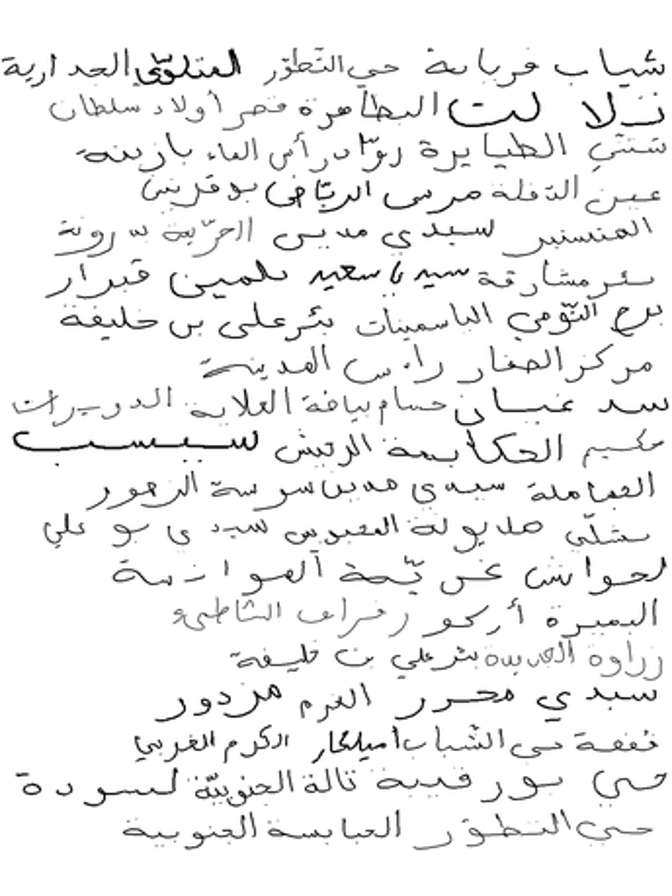 شياب قربانة حي التطوّر المتلوّي الجدارية
نزلا لت البطاهرة قصر أولاد سلطان
شنني الطيايرة روّاد رأس الماء بازينة
عين الدفلة مرسى الريّاض بوقرنين
المنستير سيدي مدين الحرّية
بئر مشارقة سيد با سعيد بلمين قبرار
برج التّومي الياسمينات بئر علي بن خليفة
مركز الصفار رأس المدينة
سد غسان حسام بياضة العلاية الدويرات
حكيم الحكايمة الرتيش سبسب
العمامله سيدي مدين سوسة الزهور
بشلّي مديونة سيدي بو علي
لحواش غريّمة الهوازية
البميرة أركو زفراف الشاطىء
زراوة الجديدة بئر علي بن خليفة
سيدي محرز الغرم مزدور
قفصة حي الشباب أميلكار الكرم الغربي
حي بورقيبة تالة الجنوبيّة لسودة
حي التطوّر العبابسة الجنوبية